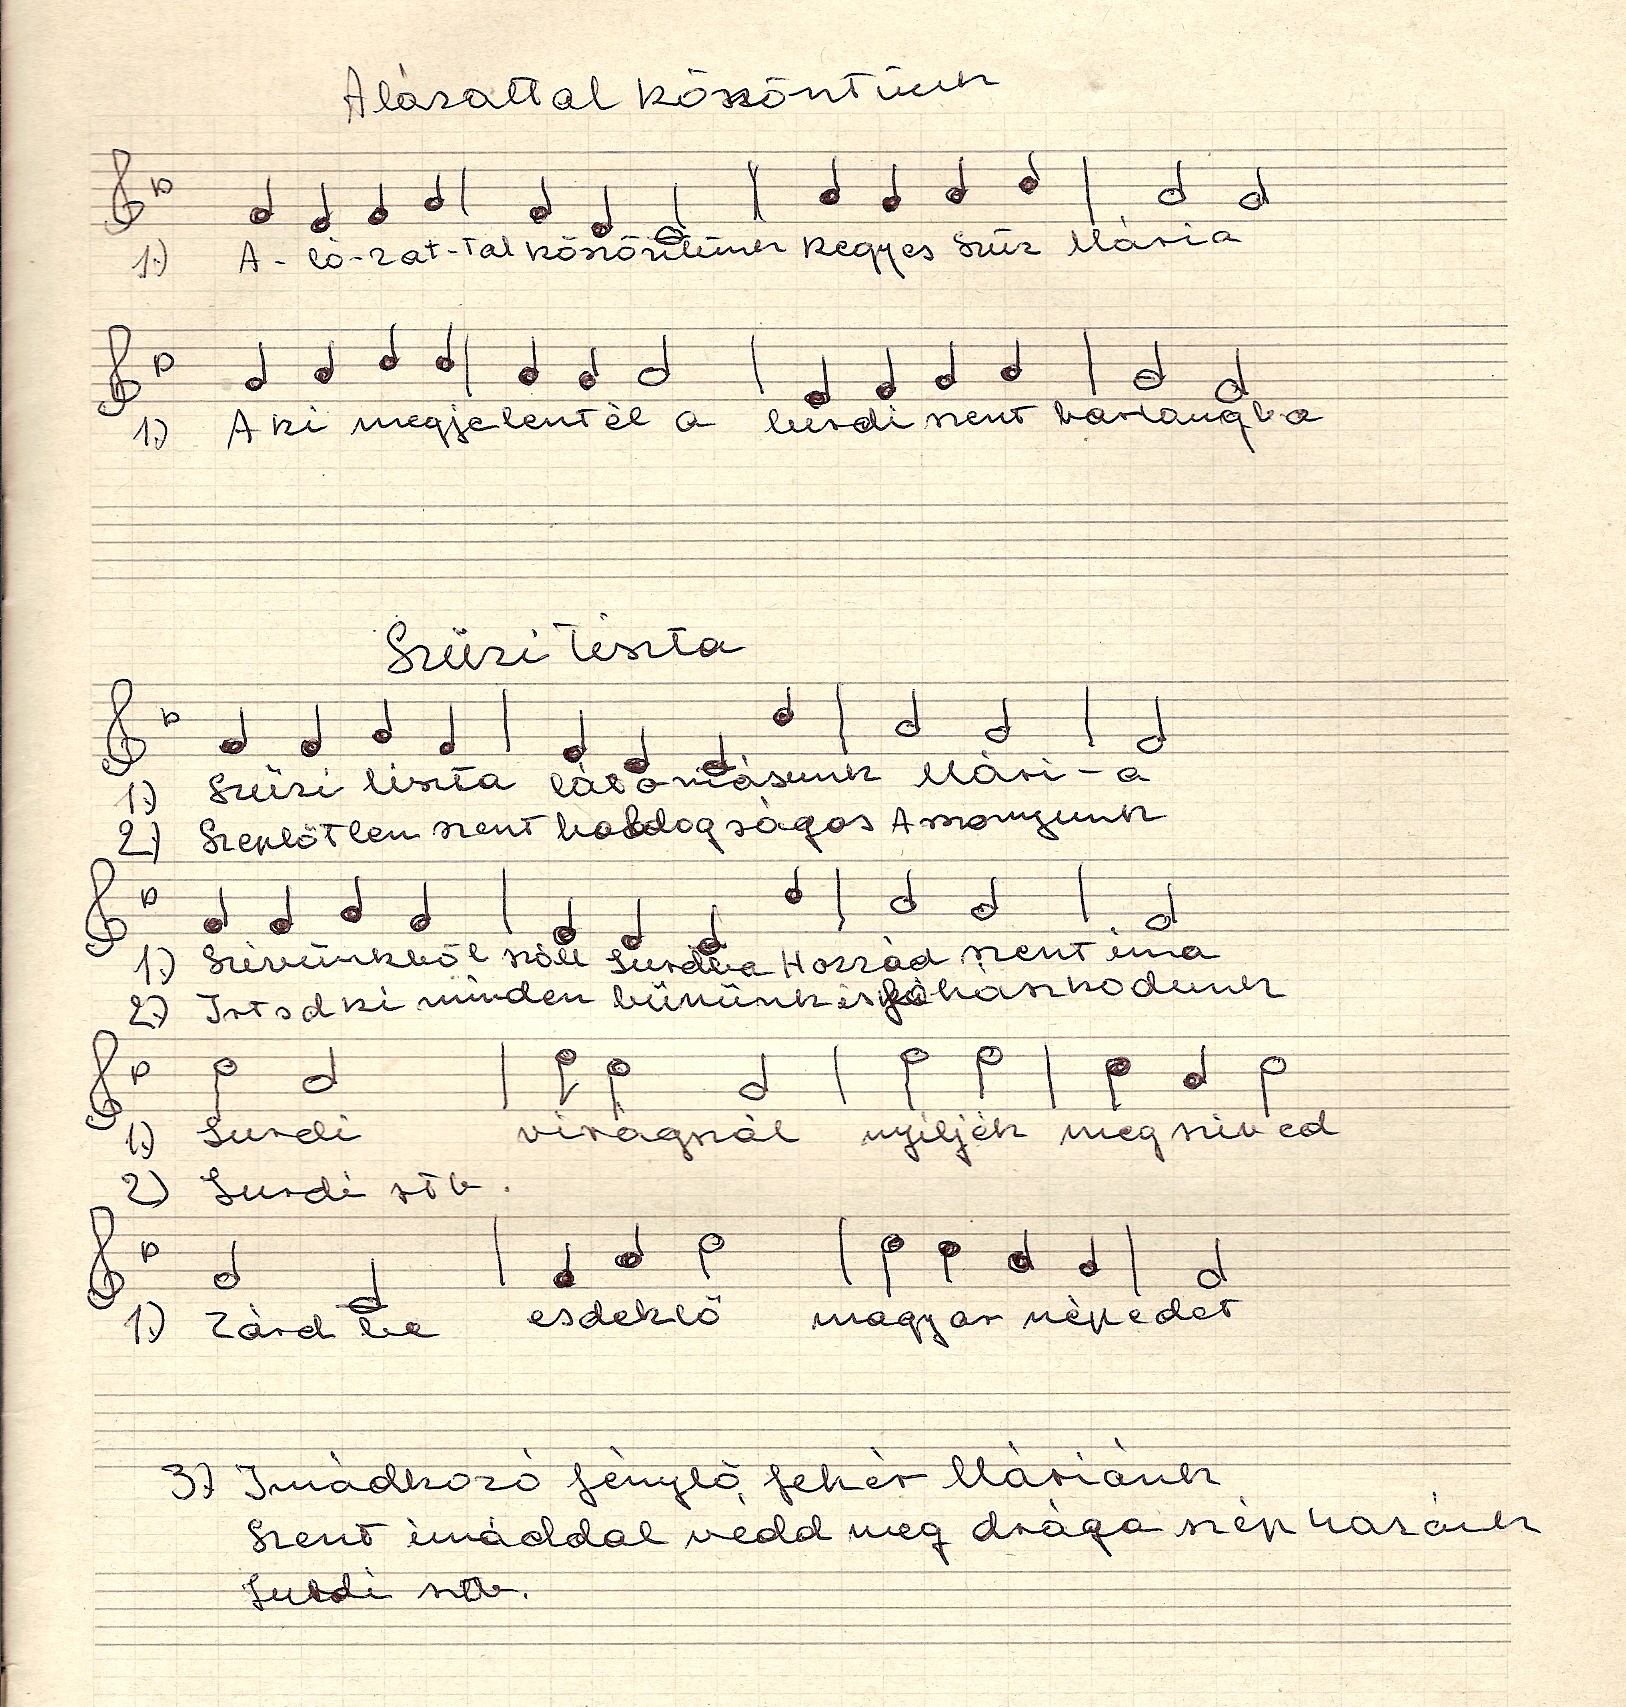 Alázattal köszöntünk
1.) A-lá-zat-tal köszöntünk kegyes Szűz Mária
1.) Aki megjelentél a lurdi szent barlangba
Szűzi tiszta
1.) Szűzi tiszta látomásunk Mári-a
2.) Szeplőtlen szent boldogságos Asszonyunk
1.) Szívünkből száll Lurdba Hozzád szent ima
2.) Irtsd ki minden bűnünk is fohászkodunk
1.) Lurdi virágszál nyíljék meg szived
2) Lurdi stb.
1.) Zárd be esdeklő magyar népedet
3.) Imádkozó fénylő, fehér Máriánk
Szent imáddal védd meg drága szép hazánk
Lurdi stb.